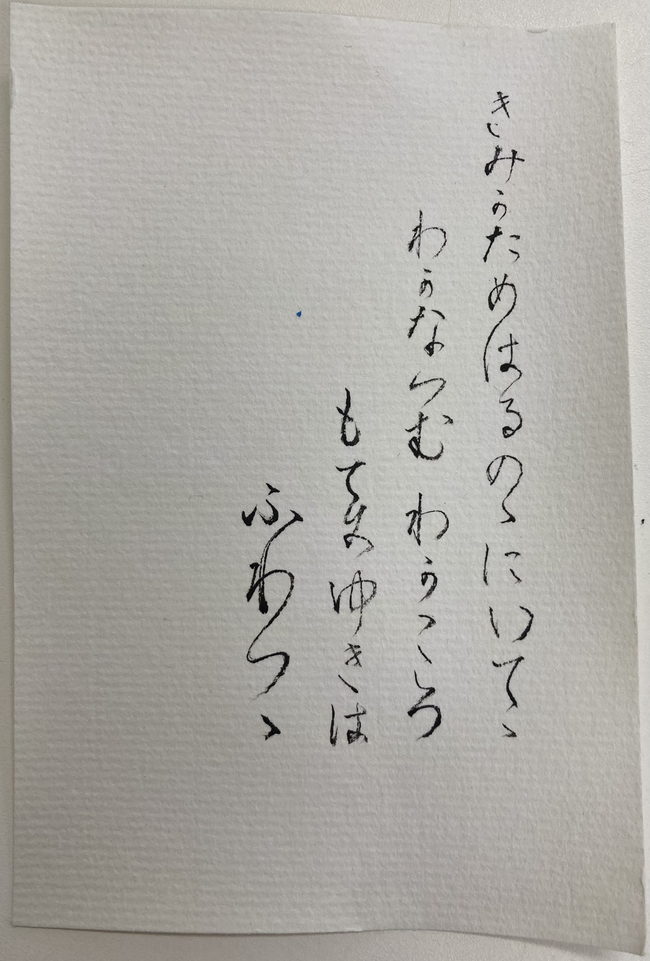 きみかためはるのゝにいてゝ
わかなつむ わかころ
もてにゆきは
ふりつゝ